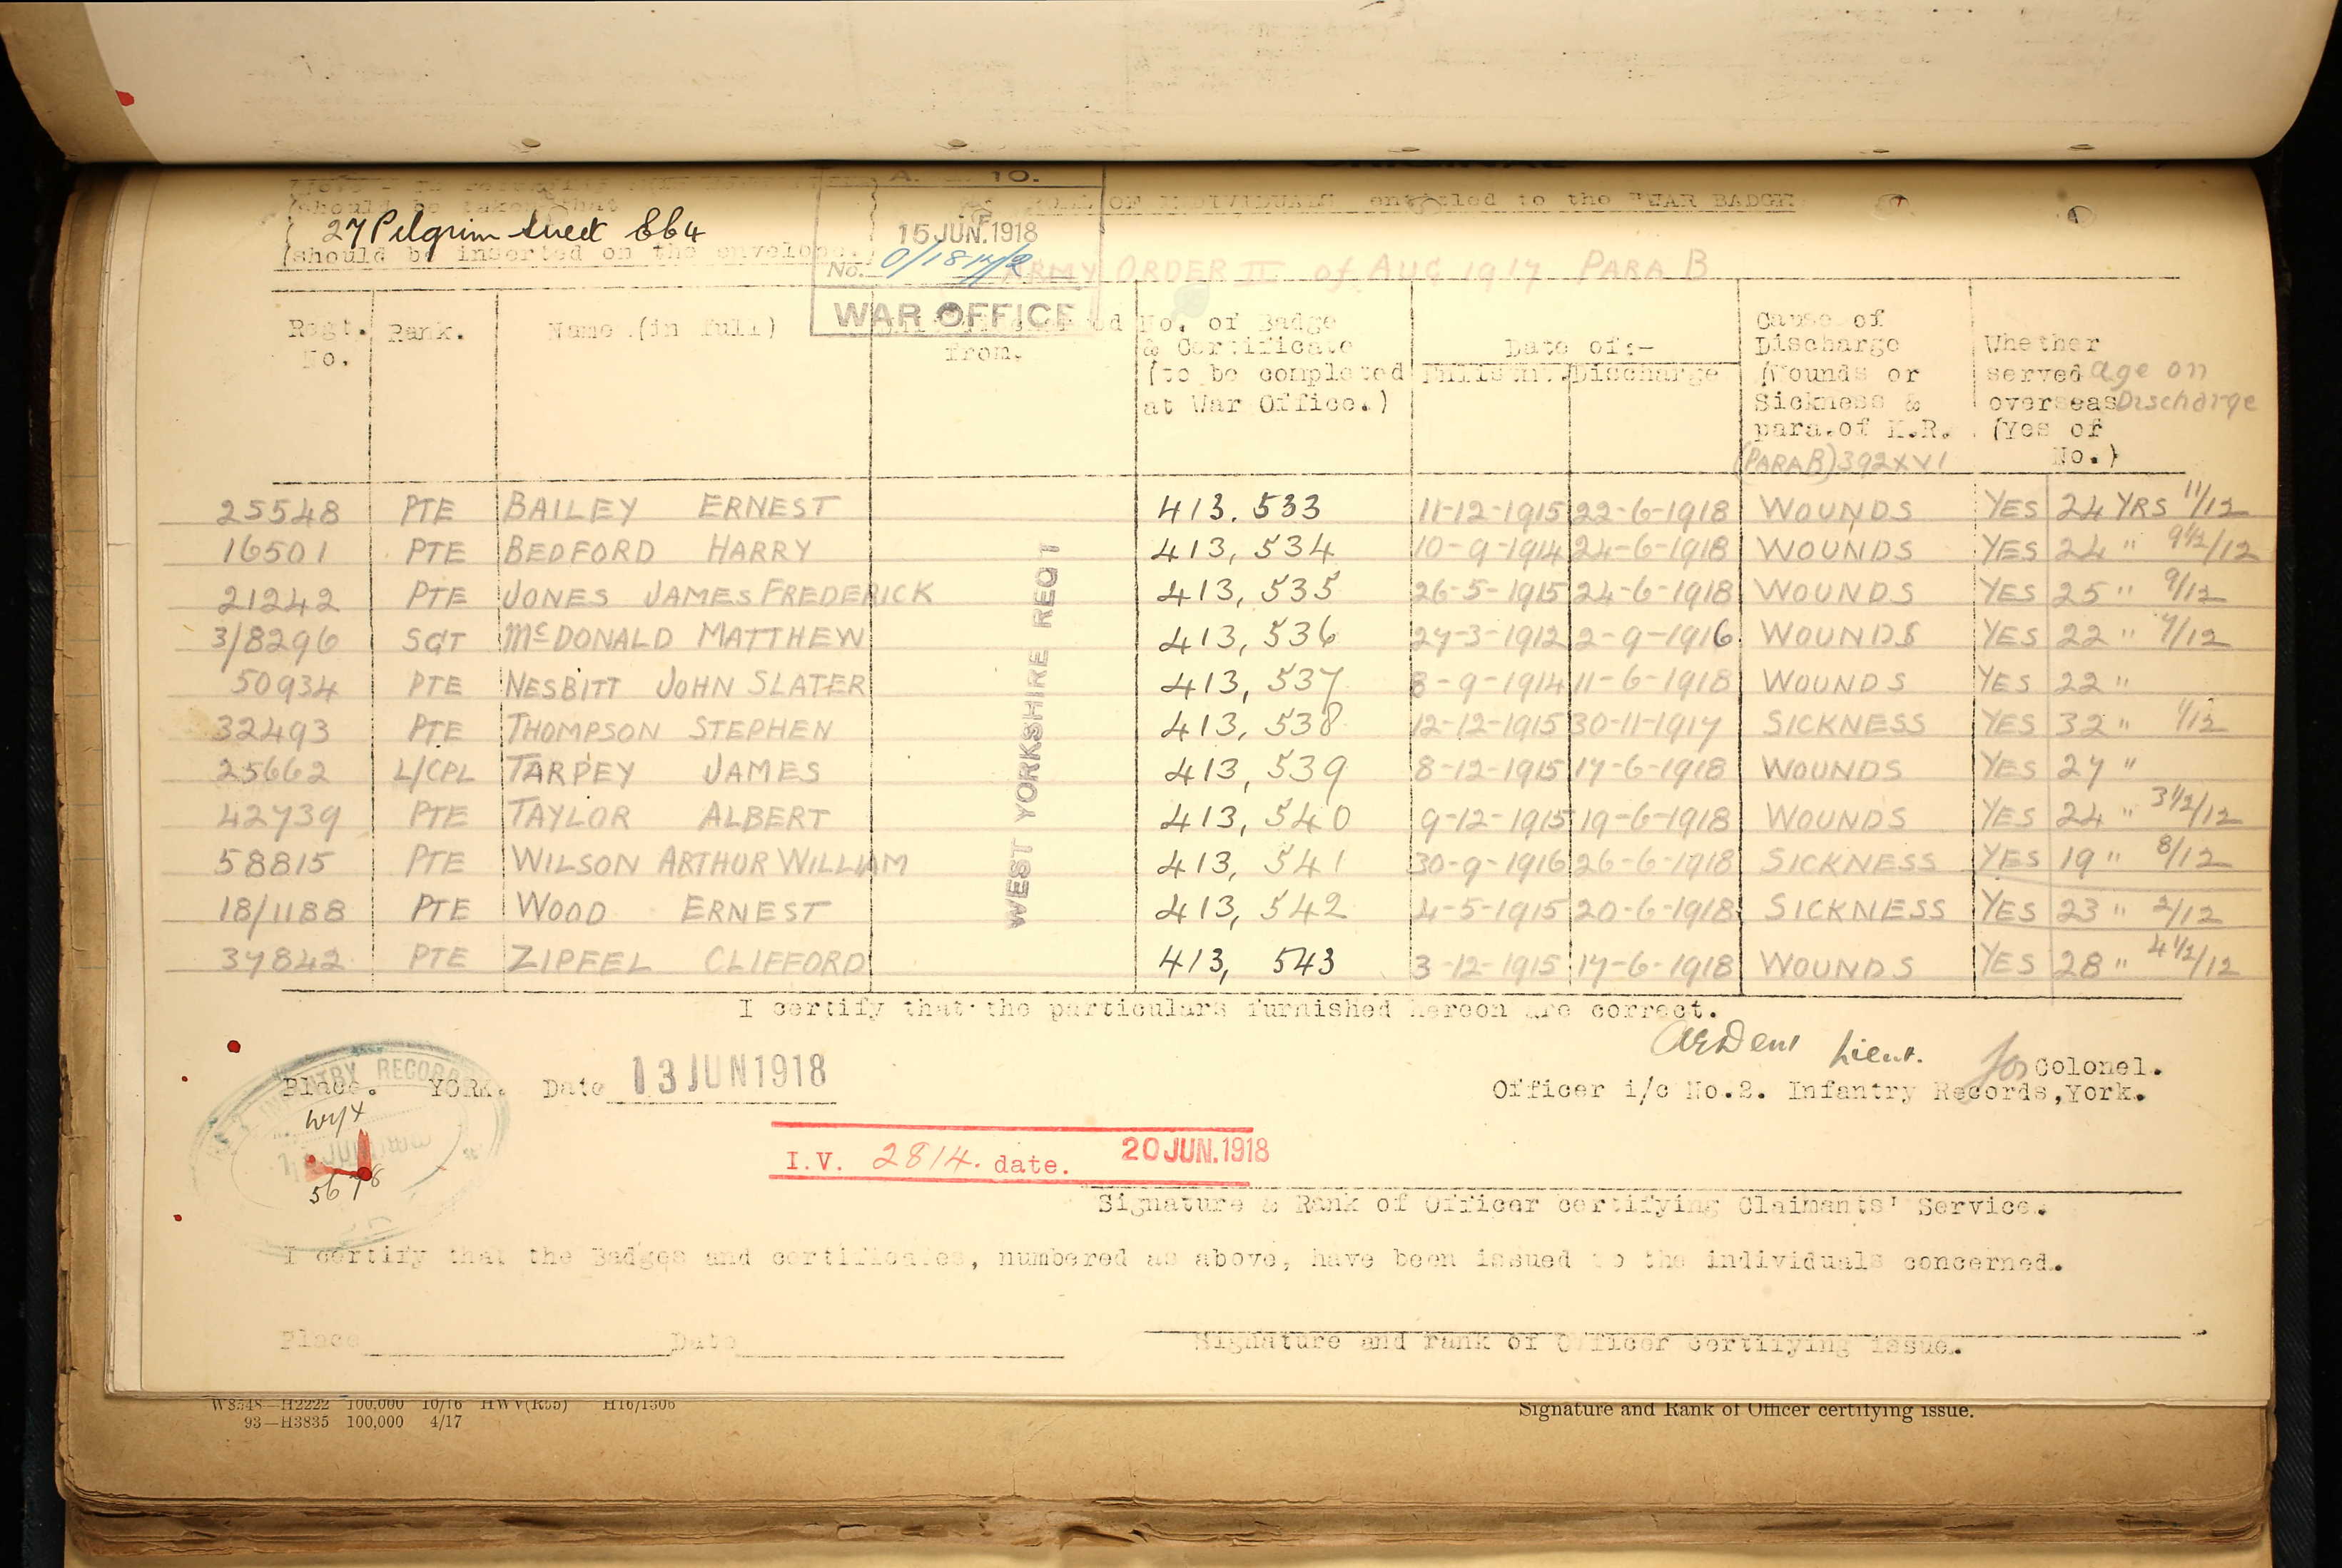 A. 10.
should be taken that
ROLL OF INDIVIDUALS entitled to the "WAR BADGE
27 Pilgrim Street EC4
15 JUN.1918
(should be inserted on the envelope.)
No.
ARMY ORDER II of AUG 1917 PARA B
WAR OFFICE
Regt. No. Rank. Name (in full) from. No. of Badge & Certificate (to be completed at War Office.) Date of:- Enlistmt. Discharge Cause of Discharge (Wounds or Sickness & para. of K.R. (PARA B) 392 XVI Whether served overseas (Yes or No.) Age on Discharge
WEST YORKSHIRE REGT
25548 PTE BAILEY ERNEST 413. 533 11-12-1915 22-6-1918 WOUNDS YES 24 YRS 11/12
16501 PTE BEDFORD HARRY 413, 534 10-9-1914 24-6-1918 WOUNDS YES 24 " 9 1/2/12
21242 PTE JONES JAMES FREDERICK 413, 535 26-5-1915 24-6-1918 WOUNDS YES 25 " 9/12
3/8296 SGT McDONALD MATTHEW 413, 536 27-3-1912 2-9-1916 WOUNDS YES 22 " 7/12
50934 PTE NESBITT JOHN SLATER 413, 537 8-9-1914 11-6-1918 WOUNDS YES 22 "
32493 PTE THOMPSON STEPHEN 413, 538 12-12-1915 30-11-1917 SICKNESS YES 32 " 1/12
25662 L/CPL TARPEY JAMES 413, 539 8-12-1915 17-6-1918 WOUNDS YES 27 "
42739 PTE TAYLOR ALBERT 413, 540 9-12-1915 19-6-1918 WOUNDS YES 24 " 3 1/2/12
58815 PTE WILSON ARTHUR WILLIAM 413, 541 30-9-1916 26-6-1918 SICKNESS YES 19 " 8/12
18/1188 PTE WOOD ERNEST 413, 542 4-5-1915 20-6-1918 SICKNESS YES 23 " 2/12
37842 PTE ZIPFEL CLIFFORD 413, 543 3-12-1915 17-6-1918 WOUNDS YES 28 " 4 1/2/12
I certify that the particulars furnished hereon are correct.
Lieut. for Colonel.
Place. YORK. Date 13 JUN 1918
Officer i/c No.2. Infantry Records, York.
INFANTRY RECORD
I.V. 2814. date. 20 JUN.1918
5678
Signature & Rank of Officer certifying Claimants' Service.
I certify that the Badges and certificates, numbered as above, have been issued to the individuals concerned.
Place Date
Signature and rank of Officer certifying issue.
W8548—H2222 100,000 10/16 HWV(R55) H16/1306
93—H3835 100,000 4/17
Signature and Rank of Officer certifying issue.